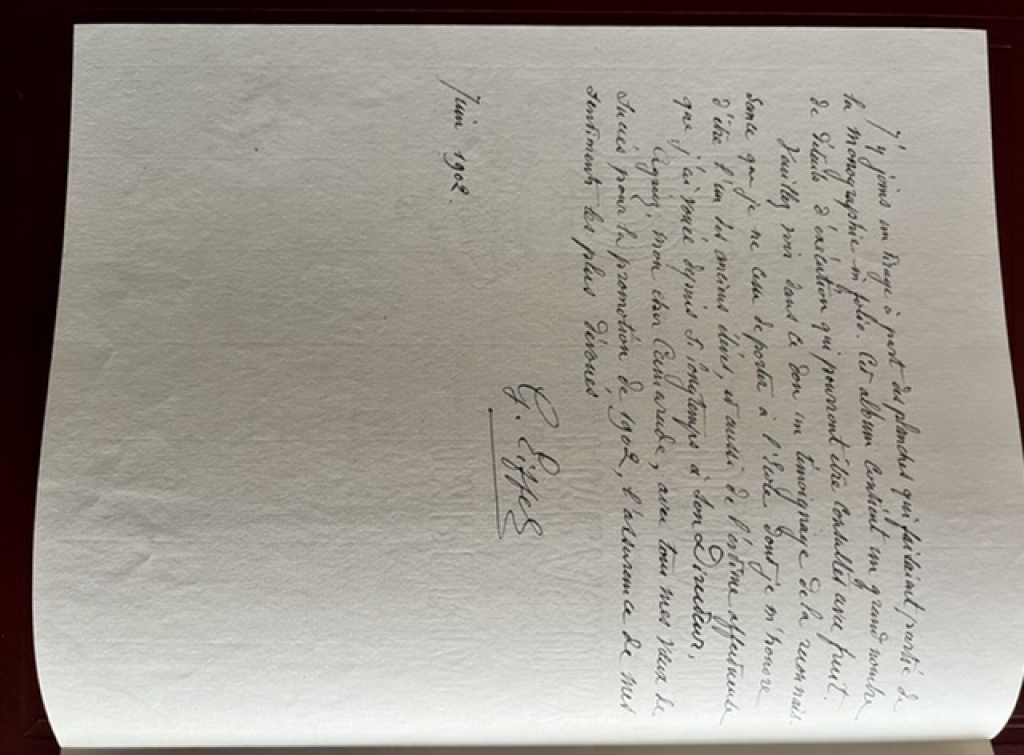 J'y joins un tirage à part des planches qui faisaient partie de
la monographie in folio. Cet album contient un grand nombre
de détails d'exécution qui pourront être consultés avec fruit.
Veuillez voir dans ce don un témoignage de la reconnais-
sance que je ne cesse de porter à l'École dont je m'honore
d'être l'un des anciens élèves, et aussi de l'estime affectueuse
que j'ai vouée depuis si longtemps à son Directeur.
Agréez, mon cher Camarade, avec tous mes vœux de
succès pour la promotion de 1902, l'assurance de mes
sentiments les plus dévoués
G. Eiffel
Juin 1902.